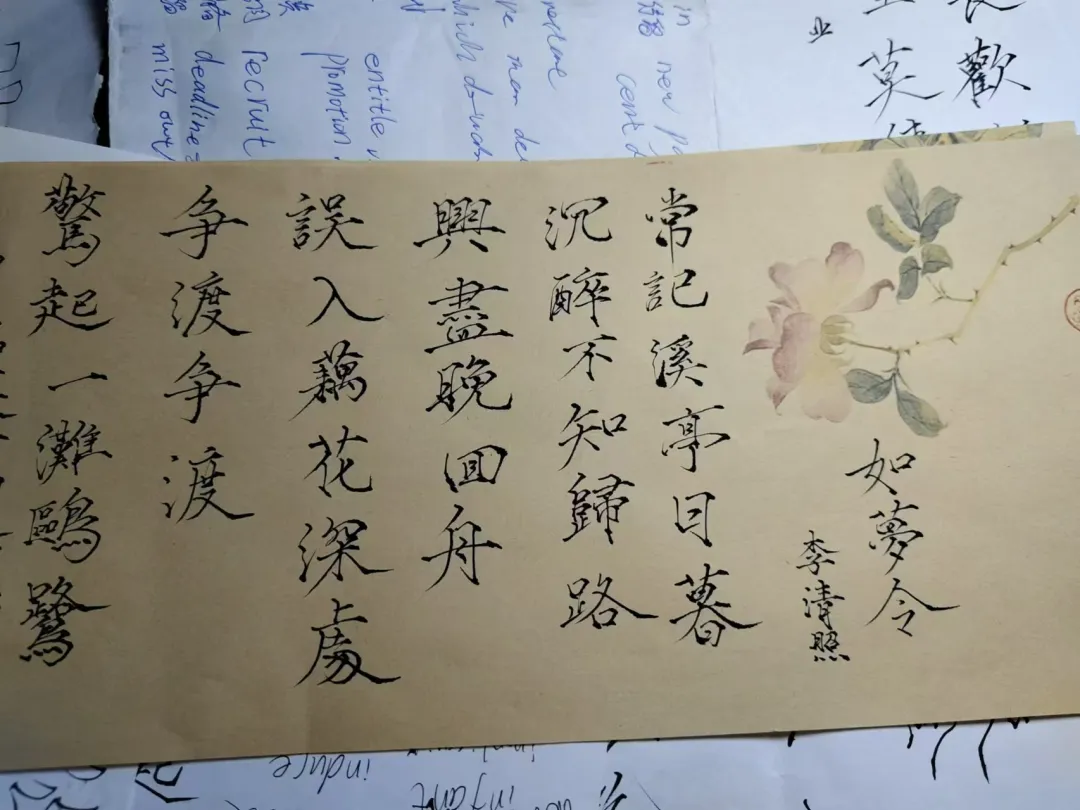 如夢令
李清照
常記溪亭日暮
沉醉不知歸路
興盡晚回舟
誤入藕花深處
爭渡爭渡
驚起一灘鷗鷺
in
new
cent
which
entitle
promotion
recruit
deadline
miss out
業
莫
歡
induce
infant